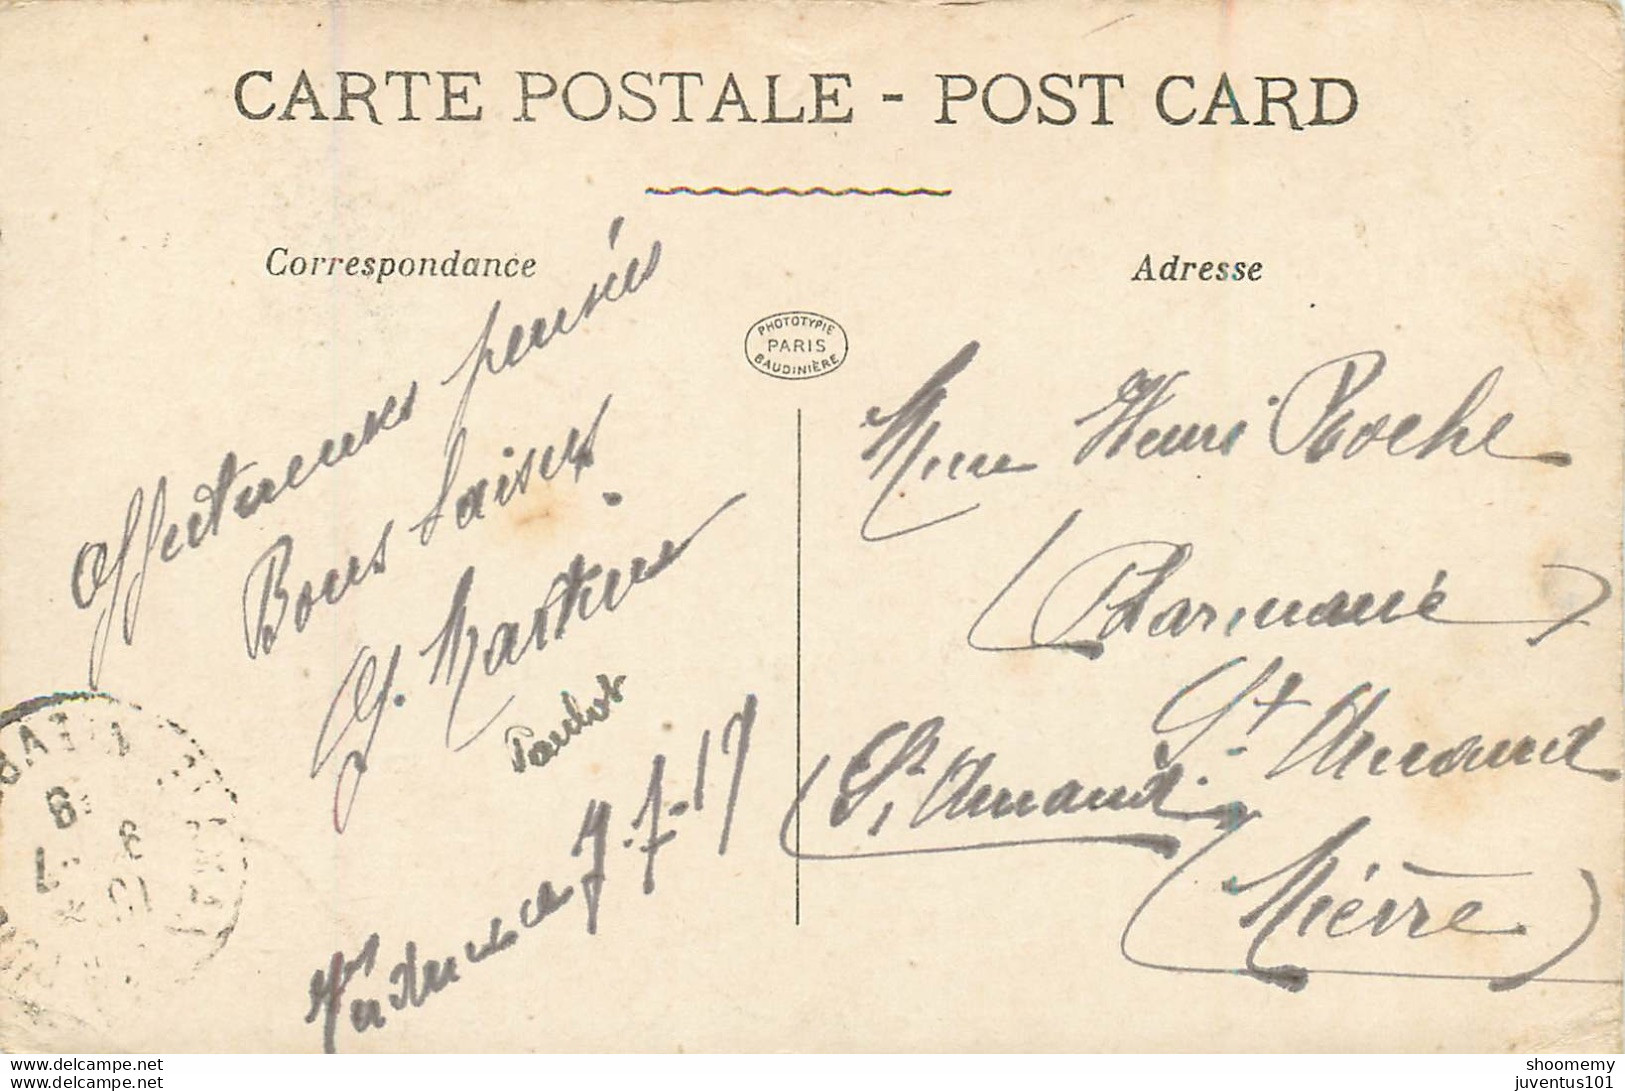 CARTE POSTALE - POST CARD
Correspondance
Affectueuses pensées
Bons baisers
G. Martin
7-7-17
PHOTOTYPIE
PARIS
BAUDINIÈRE
Adresse
Mme Henri Roche
(Pharmacie)
St Amand
(St Amand
(Nièvre)
delcampe.net
shoomemy
juventus101